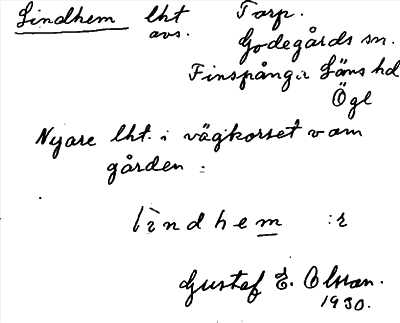 Lindhem lht Torp.
avs. Godegårds sn.
Finspånga Läns hd
Ögl
Nyare lht. i vägkorset v om
gården :
lìndhem :r
Gustaf E. Olsson.
1930.